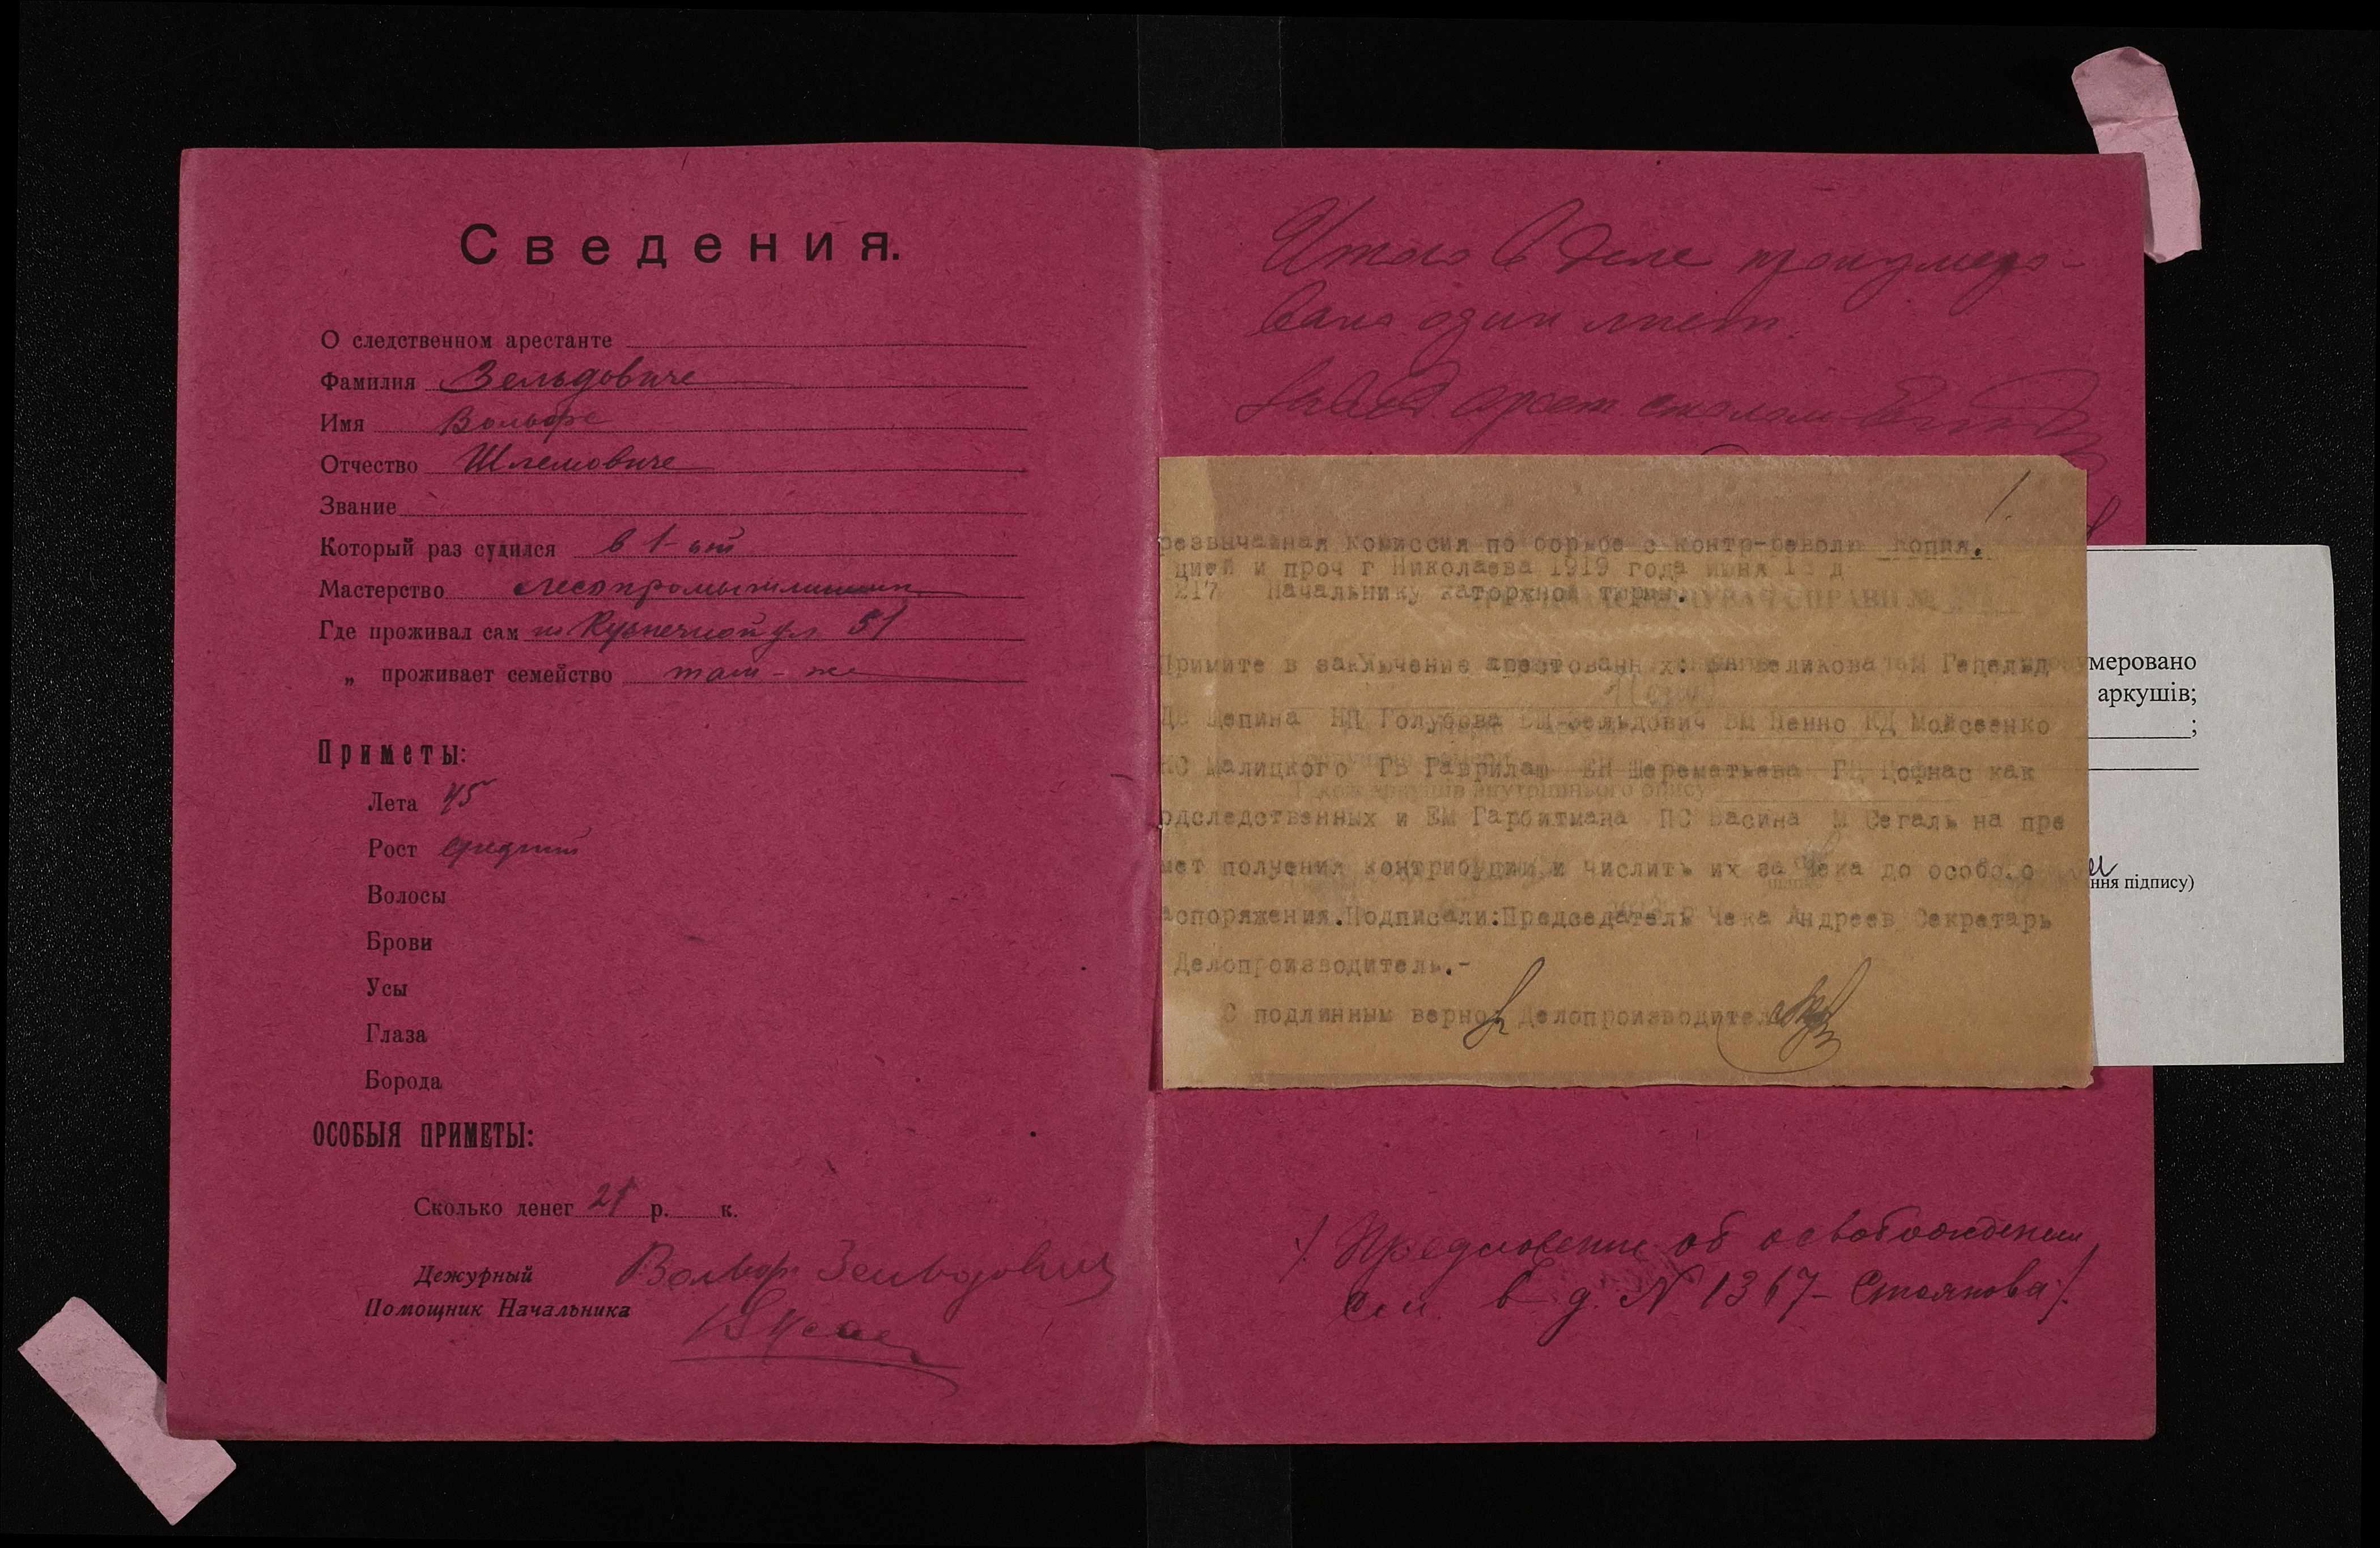 Сведения.
О следственном арестанте
Фамилия Зельдовиче
Имя Вольф
Отчество Шлемовиче
Звание
Который раз судился в 1-ый
Мастерство лесопромышленник
Где проживал сам по Кузнечной ул 51
„ проживает семейство там-же
Приметы:
Лета 45
Рост средний
Волосы
Брови
Усы
Глаза
Борода
ОСОБЫЯ ПРИМЕТЫ:
Сколько денег 21 р. к.
Дежурный Вольф Зельдович
Помощник Начальника
Итого в деле пронумеро-
вано один лист.
арест. столом
1.
резвычайная комиссия по борьбе с контр-револю Копия.
цией и проч г Николаева 1919 года июня 13 д
217 Начальнику каторжной тюрмы.
Примите в заключение арестованных: великова Гецельд
Щепина НП Голубова ВШ-Зельдович ВМ Пенно КД Мойсеенко
КС Малицкого ГВ Гаврилаш ЕН Шереметьева ГЦ Цофнас как
одследственных и ЕМ Гарбитмана ПС Васина М Сегаль на пре
мет получения контрибуции и числить их за Чека до особого
аспоряжения.Подписали:Председатель Чека Андреев Секретарь
Делопроизводитель.-
С подлинным верно: Делопроизводитель
меровано
аркушів;
;
ння підпису)
/ Предложение об освобождении
см. в д. № 1367- Стоянова/.